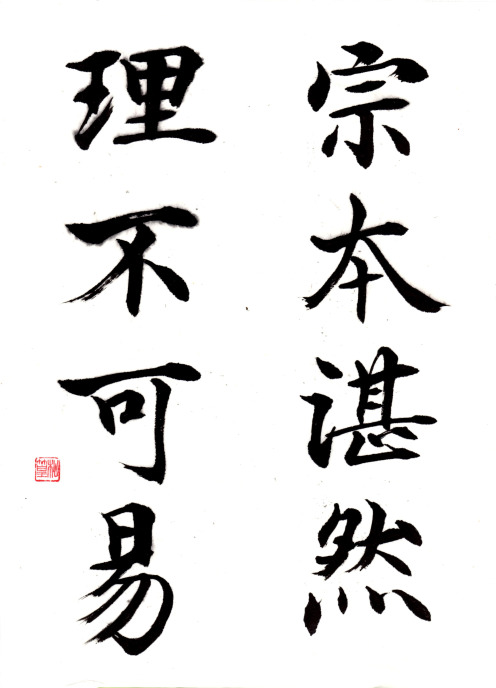 宗本湛然
理不可易